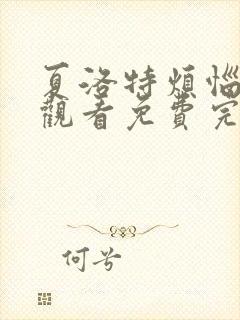 夏洛特煩惱
觀看免費完
何兮